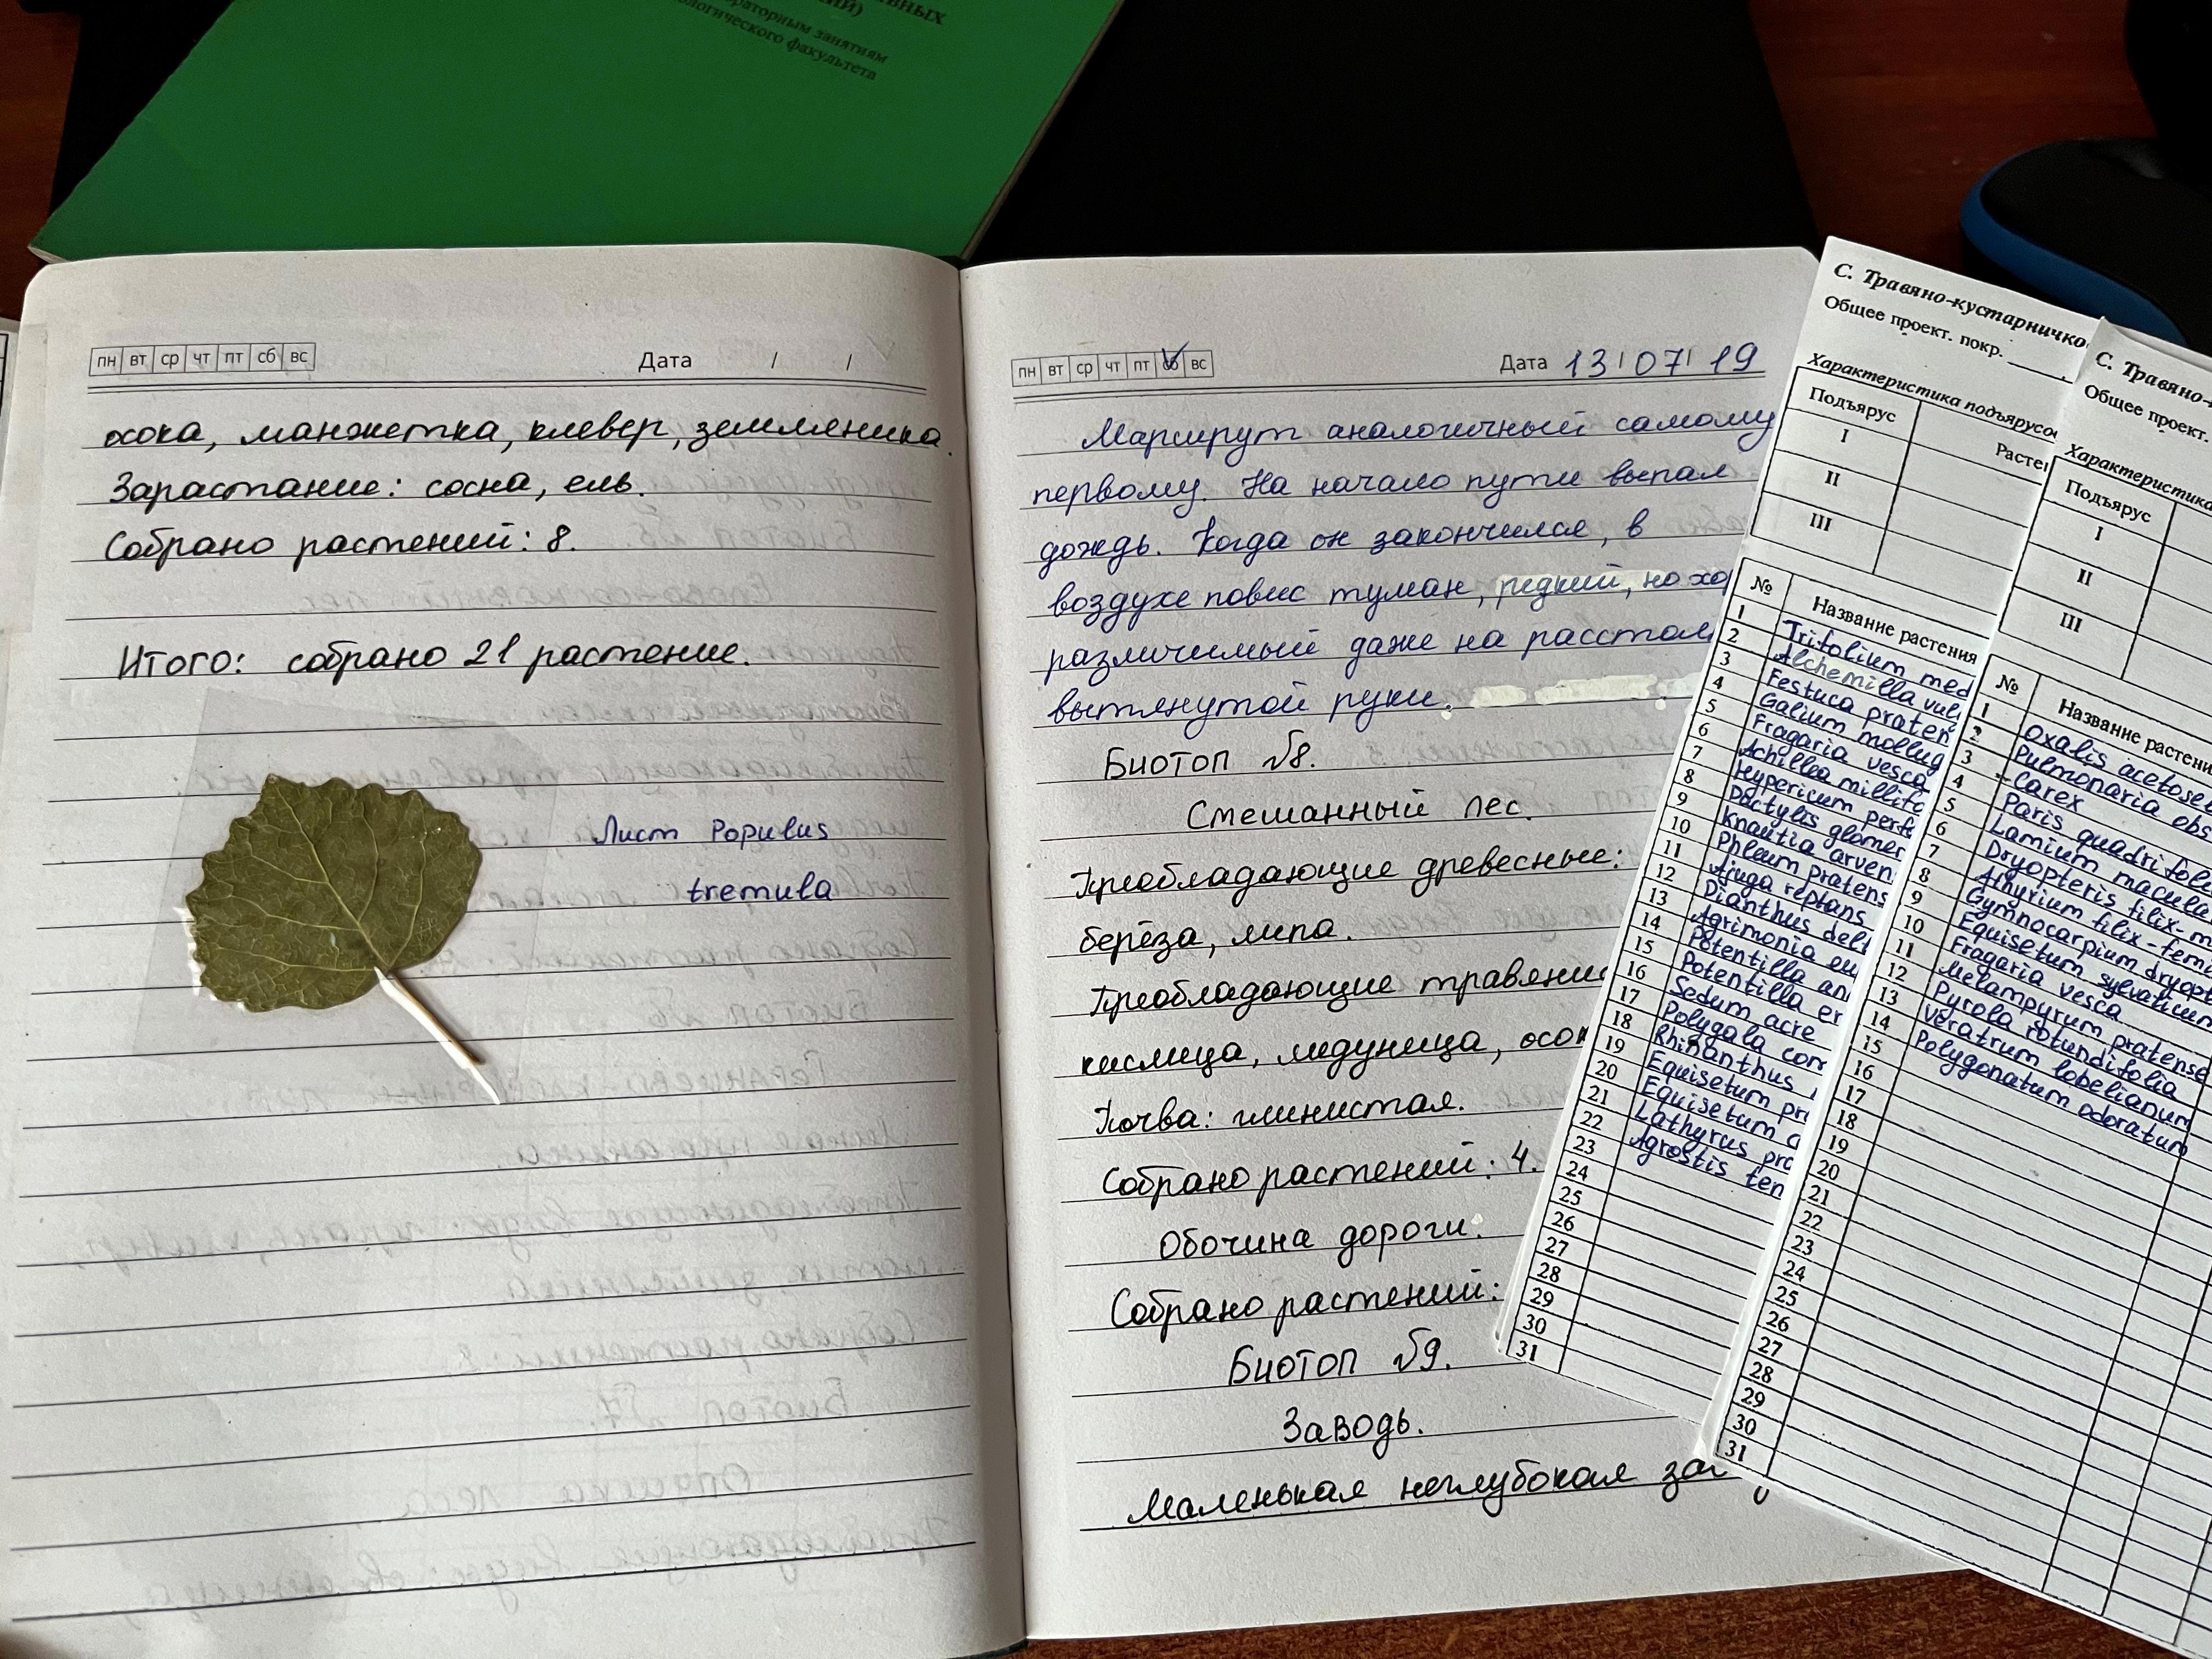 ивных
ий)
раторным занятиям
ологического факультета
пн вт ср чт пт сб вс
Дата / /
осока, манжетка, клевер, земляника.
Зарастание: сосна, ель.
Собрано растений: 8.
Итого: собрано 21 растение.
Лист Populus
tremula
пн вт ср чт пт сб вс
Дата 13/07/19
Маршрут аналогичный самому
первому. На начало пути выпал
дождь. Когда он закончился, в
воздухе повис туман, редкий, но хор
различимый даже на расстоян
вытянутой руки.
Биотоп №8.
Смешанный лес.
Преобладающие древесные:
берёза, липа.
Преобладающие травянис
кислица, медуница, осок
Почва: глинистая.
Собрано растений: 4.
Обочина дороги.
Собрано растений:
Биотоп №9.
Заводь.
Маленькая неглубокая зав
С. Травяно-кустарничко
Общее проект. покр.
Характеристика подъярусов
Подъярус
Расте
I
II
III
№ Название растения
1 Trifolium med
2 Alchemilla vul
3 Festuca praten
4 Galium mollug
5 Fragaria vesca
6 Achillea millifo
7 Hypericum perf
8 Dactylis glomer
9 Knautia arven
10 Phleum pratens
11 Ajuga reptans
12 Dianthus delt
13 Agrimonia eu
14 Potentilla an
15 Potentilla er
16 Sedum acre
17 Polygala com
18 Rhinanthus
19 Equisetum pra
20 Equisetum
21 Lathyrus pra
22 Agrostis ten
23
24
25
26
27
28
29
30
31
С. Травяно-к
Общее проект.
Характеристика
Подъярус
I
II
III
№ Название растени
1 Oxalis acetosel
2 Pulmonaria obs
3 Carex
4 Paris quadrifoli
5 Lamium macula
6 Dryopteris filix-m
7 Athyrium filix-femi
8 Gymnocarpium dryopt
9 Equisetum sylvaticum
10 Fragaria vesca
11 Melampyrum pratense
12 Pyrola rotundifolia
13 Veratrum lobelianum
14 Polygonatum odoratum
15
16
17
18
19
20
21
22
23
24
25
26
27
28
29
30
31